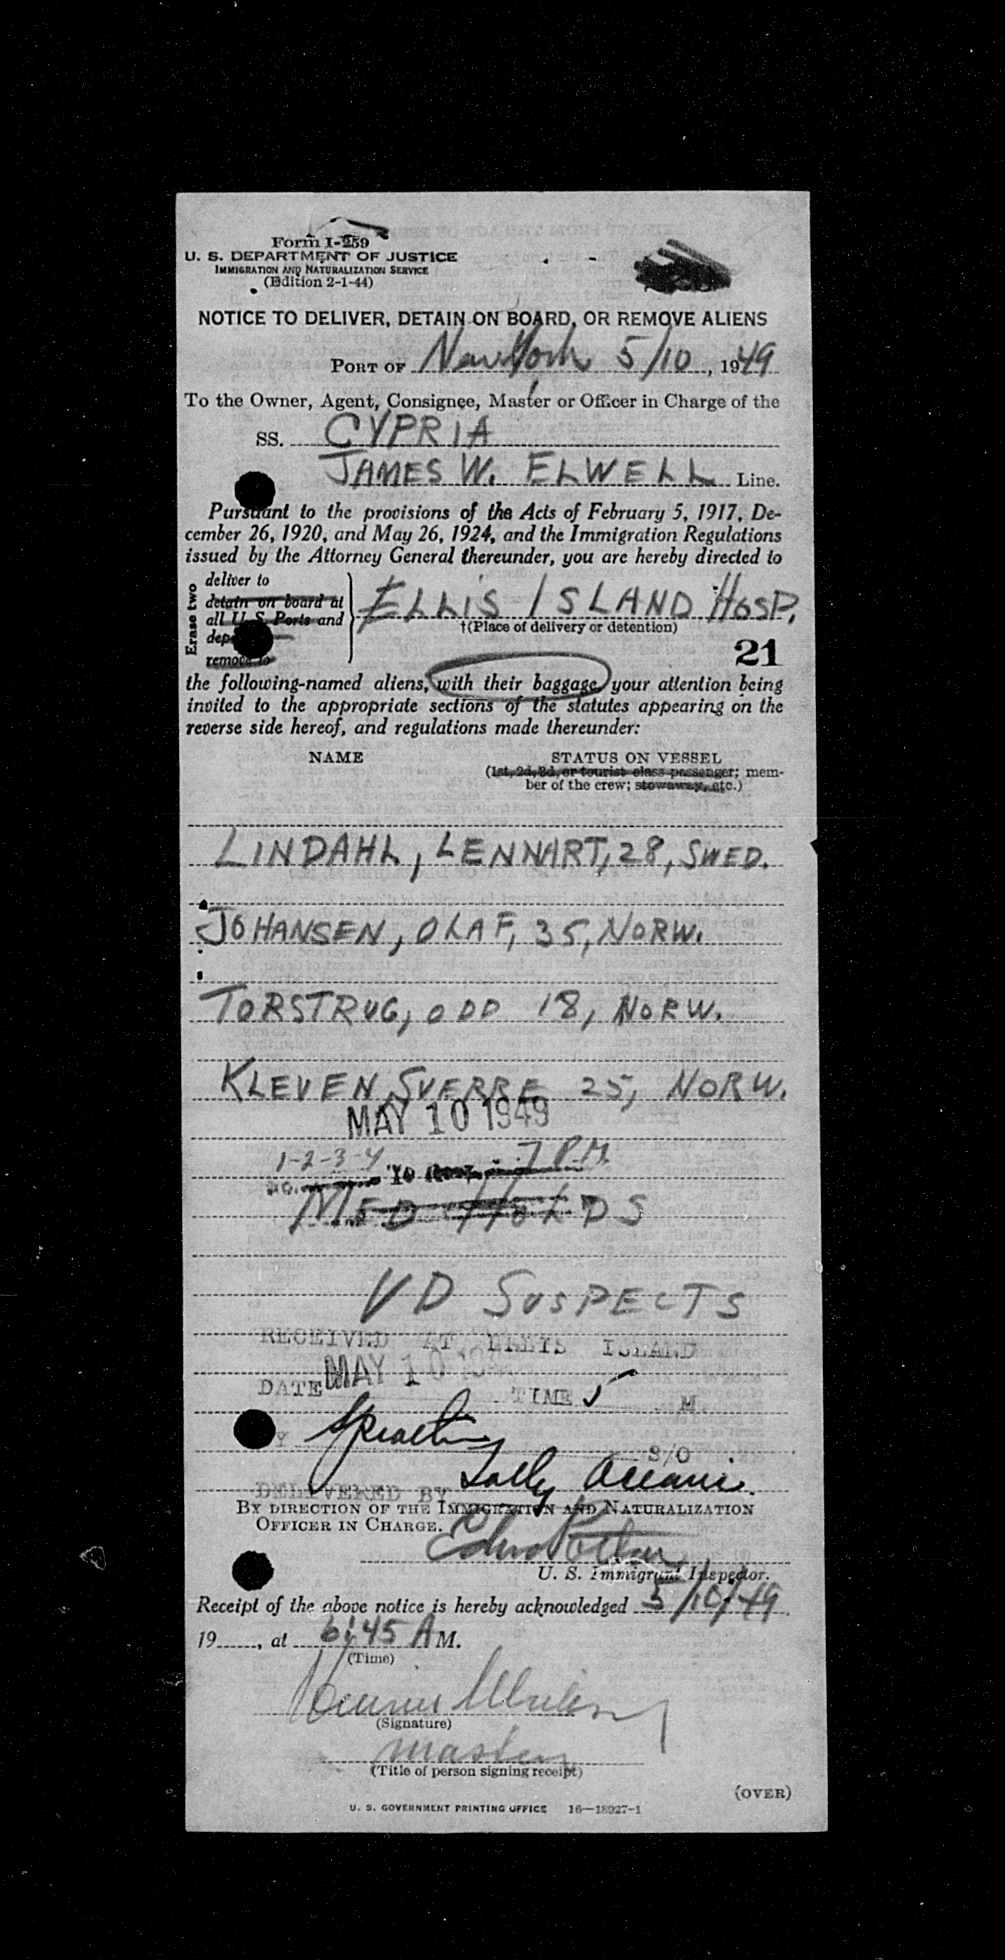 Form I-259
U. S. DEPARTMENT OF JUSTICE
IMMIGRATION AND NATURALIZATION SERVICE
(Edition 2-1-44)
NOTICE TO DELIVER, DETAIN ON BOARD, OR REMOVE ALIENS
PORT OF New York 5/10, 1949
To the Owner, Agent, Consignee, Master or Officer in Charge of the
SS. CYPRIA
JAMES W. ELWELL Line.
Pursuant to the provisions of the Acts of February 5, 1917, De-
cember 26, 1920, and May 26, 1924, and the Immigration Regulations
issued by the Attorney General thereunder, you are hereby directed to
Erase two
deliver to
detain on board at
all U. S. Ports and
remove to
ELLIS ISLAND HOSP.
†(Place of delivery or detention)
21
the following-named aliens, with their baggage, your attention being
invited to the appropriate sections of the statutes appearing on the
reverse side hereof, and regulations made thereunder:
NAME STATUS ON VESSEL
(1st, 2d, 3d, or tourist class passenger; mem-
ber of the crew; stowaway, etc.)
LINDAHL, LENNART, 28, SWED.
JOHANSEN, OLAF, 35, NORW.
TORSTRUG, ODD 18, NORW.
KLEVEN SVERRE 25, NORW.
MAY 10 1949
1-2-3-4 7 P.M.
MED HOLDS
VD SUSPECTS
RECEIVED AT ELLIS ISLAND
DATE MAY 10 TIME 5 M
S/O
DELIVERED BY
BY DIRECTION OF THE IMMIGRATION AND NATURALIZATION
OFFICER IN CHARGE.
U. S. Immigrant Inspector.
Receipt of the above notice is hereby acknowledged 5/10/49
19____, at 6:45 AM.
(Time)
(Signature)
master
(Title of person signing receipt)
(OVER)
U. S. GOVERNMENT PRINTING OFFICE 16—18927-1